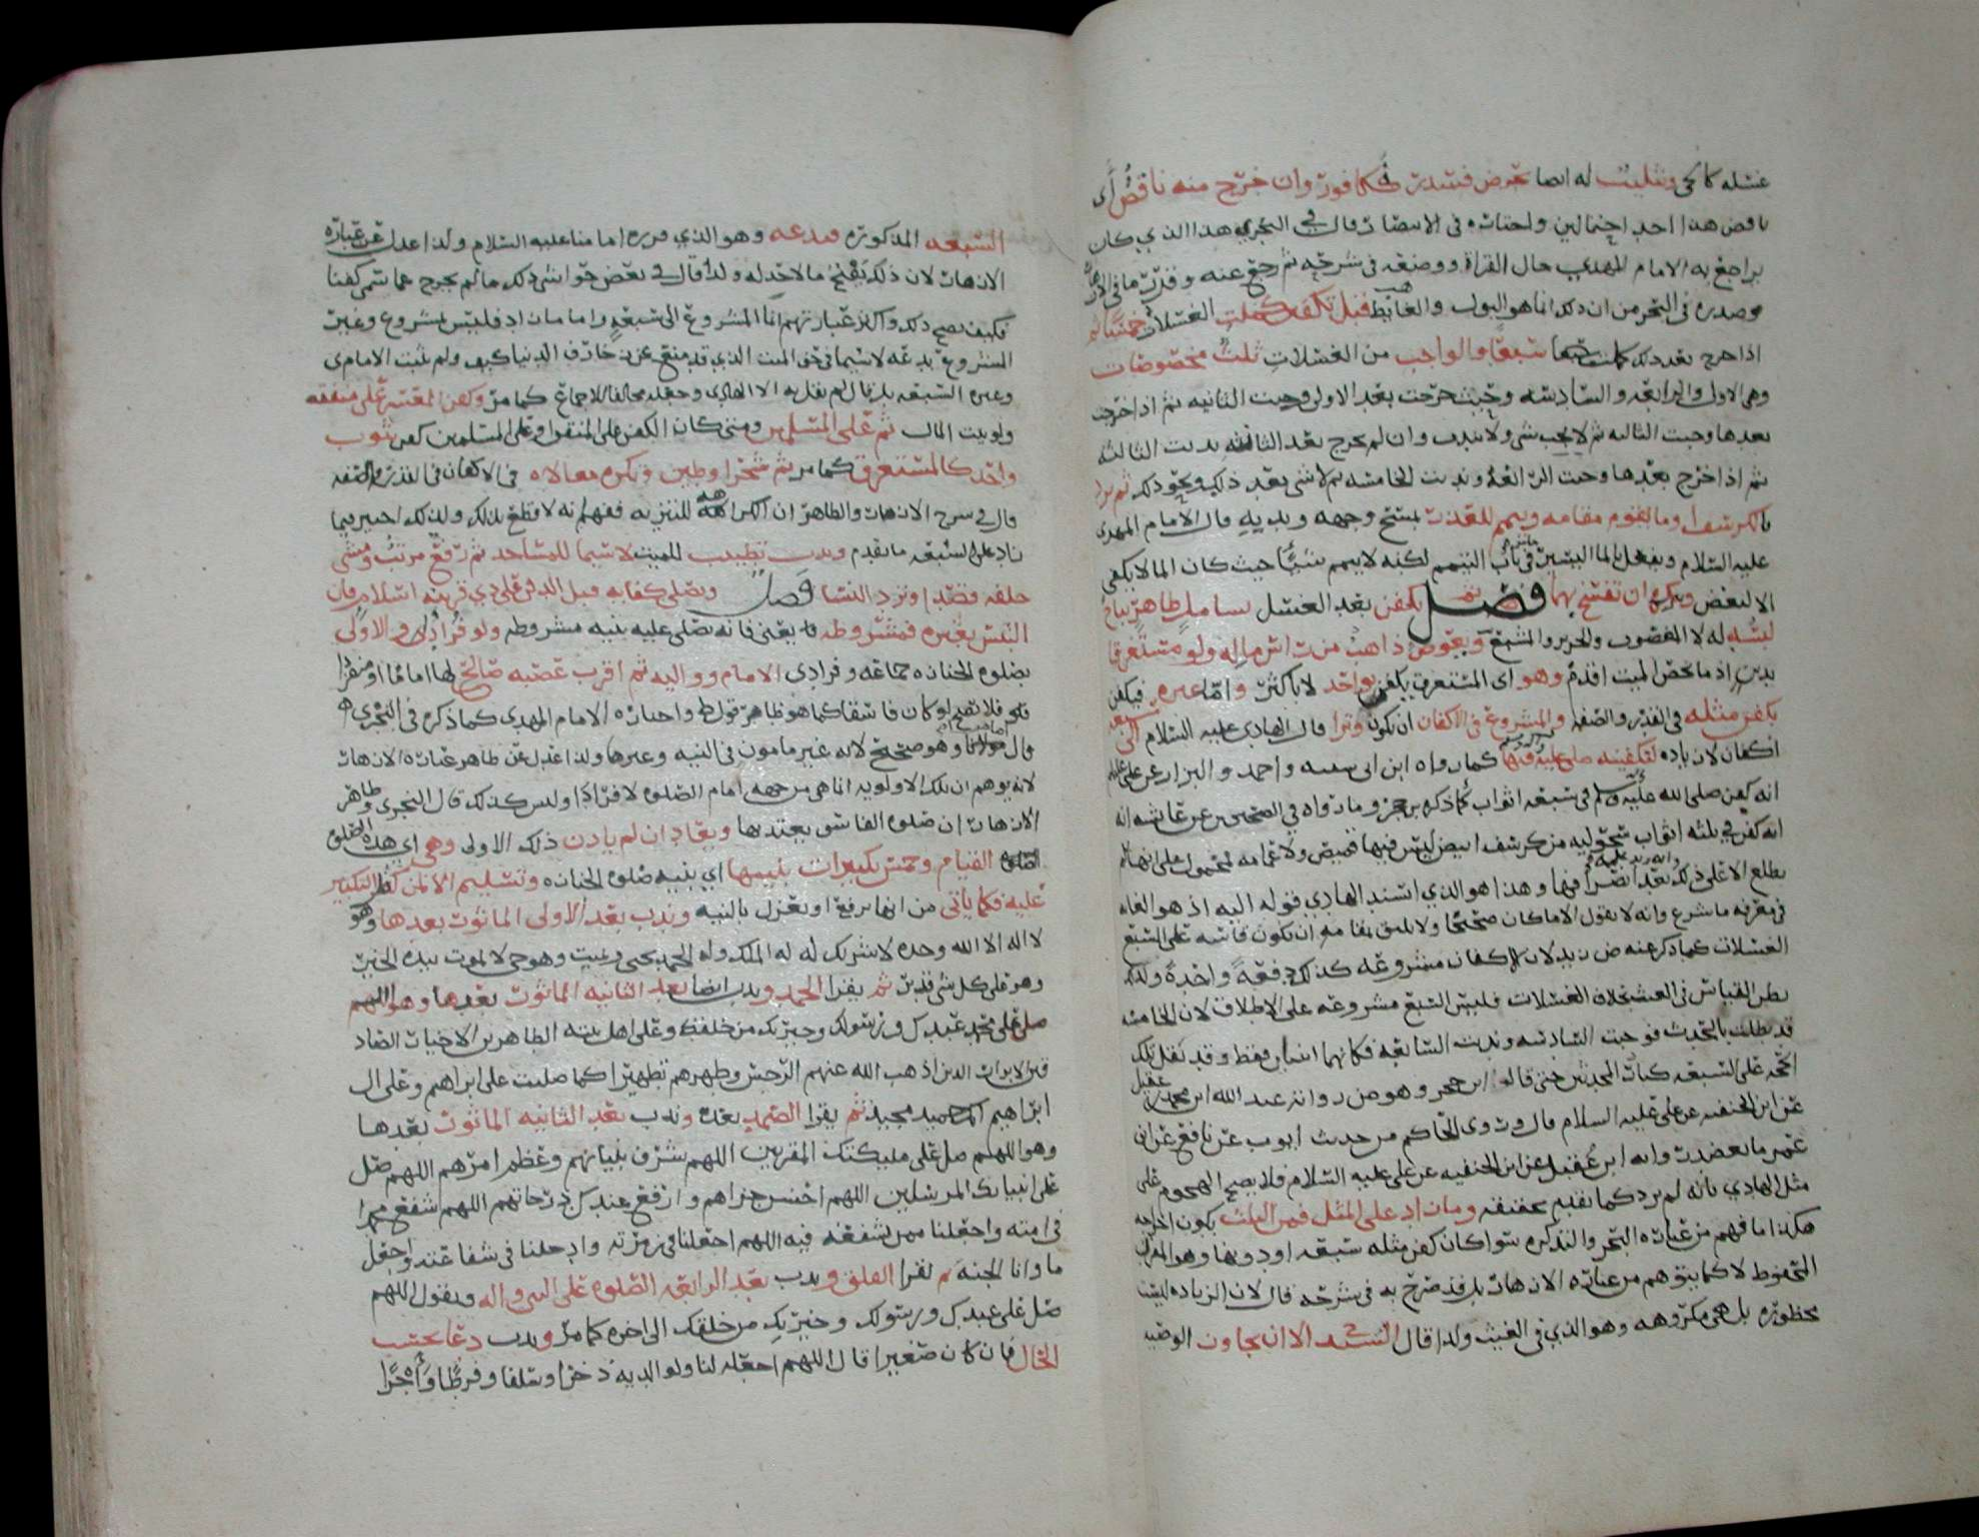 غسله كالحي وتثليث له ايضا بحرض فسدر فكافور وان خرج منه ناقض اي
ناقض هذا احد احتمالين واختاره في الانتصار قال في البحري هذا الذي كان
يراجع به الامام المهدي حال القراة ووضعه في شرحه ثم رجع عنه وقرر ما في
وصدره في البحر من ان ذلك انما هو البول والغائط قبل تكفينه كملت الغسلات خمسا
اذا خرج بعد ذلك كملت سبعا والواجب من الغسلات ثلث مخصوصات
وهي الاولى والرابعة والسادسة وحيث خرجت بعد الاولى وجبت الثانيه ثم اذا خرجت
بعدها وجبت الثالثه ثم لا يجب شي ولا يندب وان لم يخرج بعد الثانيه ندبت الثالثة
ثم اذا خرج بعدها وجبت الرابعة وندبت الخامسه ثم لا شي بعد ذلك
بالكرسف او ما يقوم مقامه وييمم للعذر بمسح وجهه ويديه قال الامام المهدي
عليه السلام ويفعل بالما اليسير في باب التيمم لكنه لا ييمم حيث كان الما لا يكفي
الا لبعض ويكره ان تفسخ بهما فصل ثم يكفن بعد الغسل بساتر طاهر يباح
لبسه له لا المغصوب والحرير والمشبع ويعوض ذاهب من راس ماله ولو مستغرقا
بدين اذ ما يخص الميت اقدم وهو اي المستغرق يكفن بواحد لا باكثر واما غيره فيكفن
بكفن مثله في القدر والصفه والمشروع في الاكفان ان تكون وترا قال الهادي عليه السلام الى سبعه
اكفان لان كما رواه ابن ابي شيبه واحمد والبزار عن علي
انه كفن صلى الله عليه وسلم في سبعه اثواب كما ذكره بن حجر وما رواه في الصحيحين عن عايشه انه
انه كفن في ثلثه اثواب سحوليه من كرسف ابيض ليس فيها قميص ولا عمامه محمول على انها لم
يطلع الا على ذلك وهذا هو الذي استند الهادي قوله اليه اذ هو الغايه
في معرفه ما شرع وانه لا يقول الا ما كان صحيحا ولا يليق بمقامه ان تكون قاسه على السبع
الغسلات كما ذكر عنه ض زيد لان الاكفان مشروعه كذلك دفعة واحدة
القياس في العشر بخلاف الغسلات فليس السبع مشروعه على الاطلاق لان الخامسه
قد بطلت بالحدث فوجبت السادسه وندبت السابعه فكانهما اثنان فقط وقد نقل تلك
الحجه على السبعه كبار المحدثين حتى قال ابن حجر وهو من روايه عبد الله ابن محمد عقيل
عن ابن الحنفيه عن علي عليه السلام قال وروى الحاكم من حديث ايوب عن نافع عن ابن
عمر ما يعضد روايه ابن عقيل عن ابن الحنفيه عن علي عليه السلام فلا يصح الهجوم على
مثل الهادي بانه لم يرد كما تقدم تحقيقه وما زاد على المثل فمن الثلث يكون اخراجه
هكذا ما فهم من عباره البحر والتذكره سوا كان كفن مثله سبعه او دونها وهو المقرر
المحفوظ لا كما يتوهم من عباره الازهار بل قد صرح به في شرحه قال لان الزياده ليست
محظوره بل هي مكروهه وهو الذي في الغيث ولذا قال السيد الا ان يجاوز الوصيه
السبعه المذكورة فبدعه وهو الذي قرره امامنا عليه السلام ولذا عدل عن عبارة
الازهار لان ذلك يفتح ما لا حد له ولذا قال في بعض حواشي ذلك ما لم يخرج عما سمي كفنا
فكيف يصح ذلك واكثر عبارتهم ان المشروع الى سبعه واما ما زاد فليس بمشروع وغير
المشروع بدعه لا سيما في حق الميت الذي قد منع عن زخارف الدنيا كيف ولم يثبت الامام ي
وغيره السبعه بل قال لم يقل به الا الهادي وجعله مخالفا للاجماع كما مر وكفن المعسر على منفقه
ولو بيت المال ثم على المسلمين ومتى كان الكفن على المنفق او على المسلمين كفن بثوب
واحد كالمستغرق كما مر ثم شجرا وطين وتكره مغالاه في الاكفان في القدر والصفه
قال في شرح الازهار والظاهر ان الكراهه للتنزيه ففهم انه لا قطع بذلك ولذلك اختير فيما
زاد على السبعه ما تقدم وندب تطييب للميت لا سيما للمساجد ثم رفع مرتب ومشي
خلفه قصدا وترد النسا فصل ويصلى كفايه قبل الدفن على ذي قرينه اسلام فان
التبس بغيره فمشروطه يعني فانه يصلى عليه بنيه مشروطه ولو فرادى والاولى
بصلوه الجنازه جماعه وفرادى الامام وواليه ثم اقرب عصبه صالح لها اماما او منفردا
فلا تصح لو كان فاسقا كما هو ظاهر قول ط واختاره الامام المهدي كما ذكره في البحري
قال مولانا وهو صحيح لانه غير مامون في النيه وغيرها ولذا عدل عن ظاهر عباره الازهار
لانه يوهم ان تلك الاولويه انما هي من جهه امام الصلوه لا فرادا وليس كذلك قال البحري وظاهر
الازهار ان صلوه الفاسق يعتد بها ويعاد ان لم ياذن ذلك الاولى وهي اي هذه الصلوه
القيام وخمس تكبيرات بنيتها اي بنيه صلوه الجنازه وتسليم
عليه فكما ياتي من انها ترفع او تعزل بالنيه وندب بعد الاولى الماثور بعدها وهو
لا اله الا الله وحده لا شريك له له الملك وله الحمد يحيي ويميت وهو حي لا يموت بيده الخير
وهو على كل شي قدير ثم يقرا الحمد وندب ايضا بعد الثانيه الماثور بعدها وهو اللهم
صل على محمد عبدك ورسولك وخيرتك من خلقك وعلى اهل بيته الطاهرين الاخيار الصاد
قين الابرار الذين اذهب الله عنهم الرجس وطهرهم تطهيرا كما صليت على ابراهيم وعلى ال
ابراهيم انك حميد مجيد ثم يقرا الصمد بعده وندب بعد الثانيه الماثور بعدها
وهو اللهم صل على مليكتك المقربين اللهم شرف بنيانهم وعظم امرهم اللهم صل
على انبيائك المرسلين اللهم احسن جزاهم وارفع عندك درجاتهم اللهم شفع محمدا
في امته واجعلنا ممن تشفعه فيه اللهم اجعلنا في زمرته وادخلنا في شفاعته واجعل
ماوانا الجنه ثم يقرا الفلق وندب بعد الرابعه الصلوه على النبي واله ويقول اللهم
صل على عبدك ورسولك وخيرتك من خلقك الى اخره كما مر وندب دعا بحسب
الحال فان كان صغيرا قال اللهم اجعله لنا ولوالديه ذخرا وسلفا وفرطا واجرا